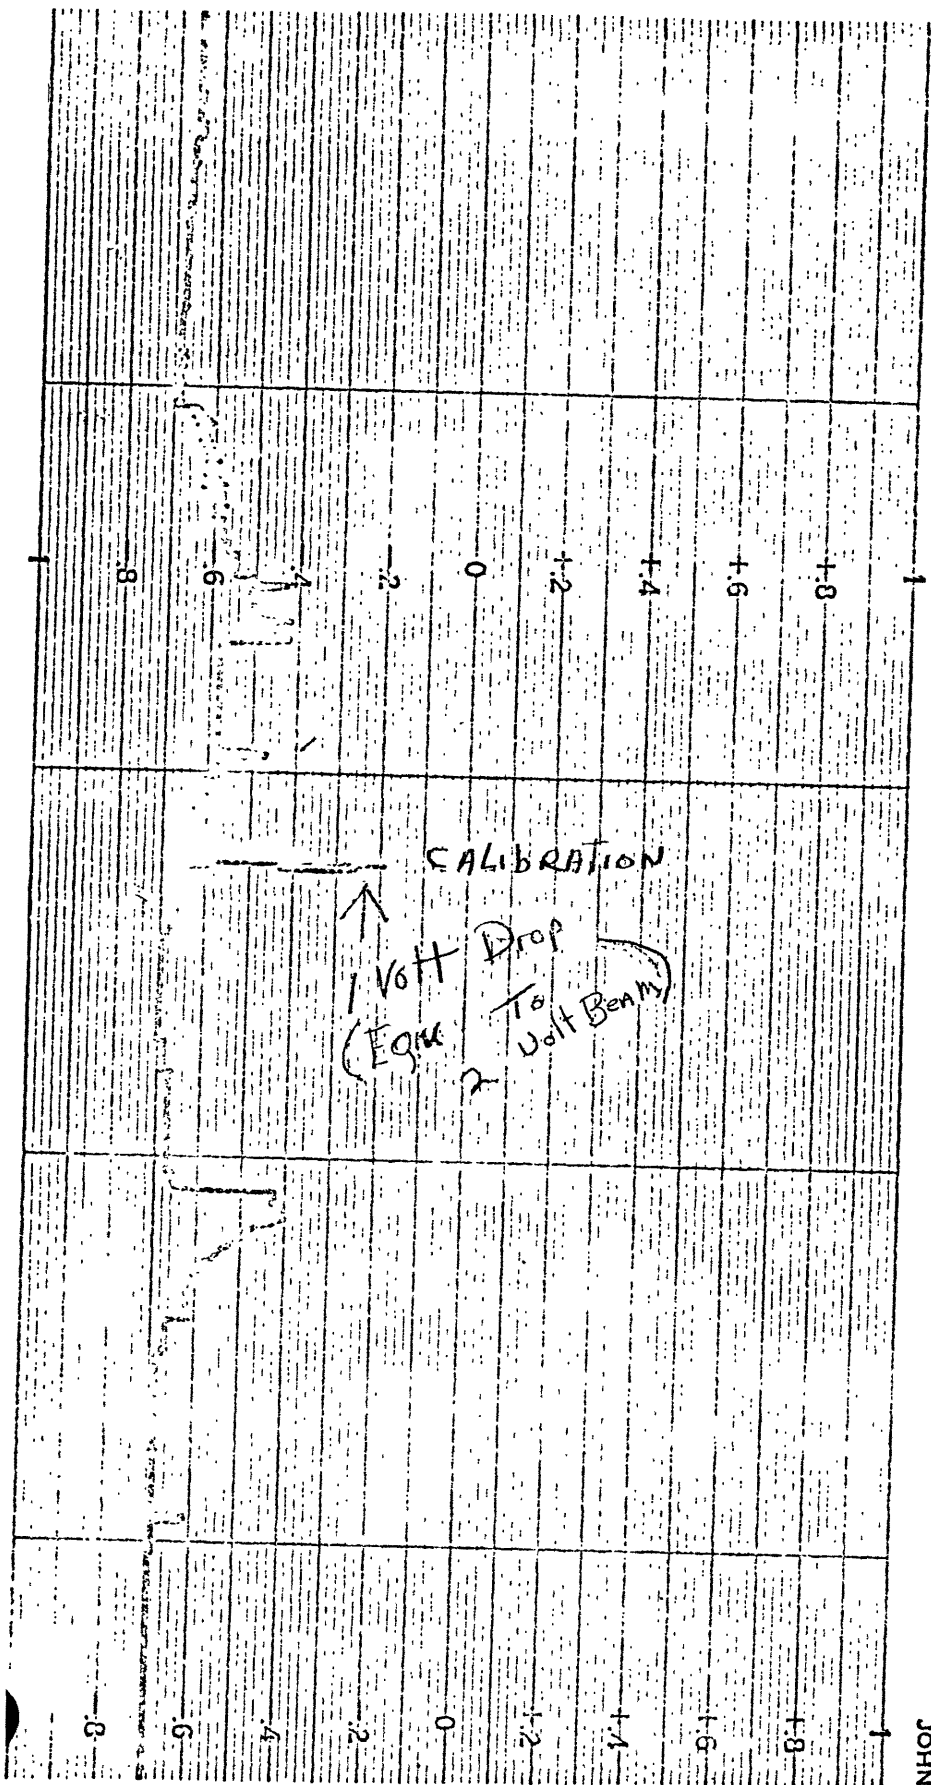 1 .8 .6 .4 .2 0 +.2 +.4 +.6 +.8 1
CALIBRATION
1 Volt Drop
(Equ To
2 Volt Beam)
.8 .6 .4 .2 0 +.2 +.4 +.6 +.8 1
JOHN